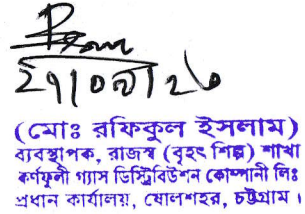 ২৭/০৯/২৩
(মোঃ রফিকুল ইসলাম)
ব্যবস্থাপক, রাজস্ব (বৃহৎ শিল্প) শাখা
কর্ণফুলী গ্যাস ডিস্ট্রিবিউশন কোম্পানী লিঃ
প্রধান কার্যালয়, ষোলশহর, চট্টগ্রাম।